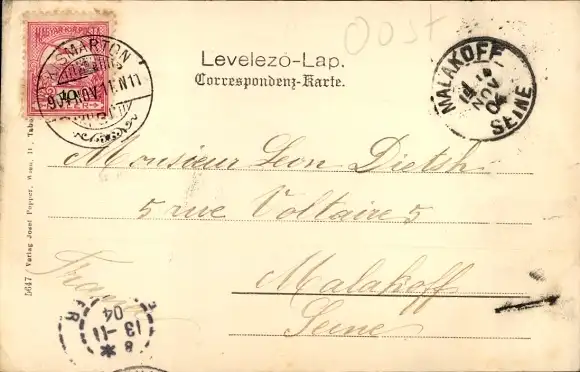 Oost
MAGYAR KIR. POSTA
MARTON
904 NOV. 11. N 11
10
Levelező-Lap.
Correspondenz-Karte.
MALAKOFF
14
NOV
04
SEINE
Monsieur Leon Dietsh
5 rue Voltaire 5
France
Malakoff
Seine
5647 / Verlag Josef Popper, Wien, II,
8
13-11
04